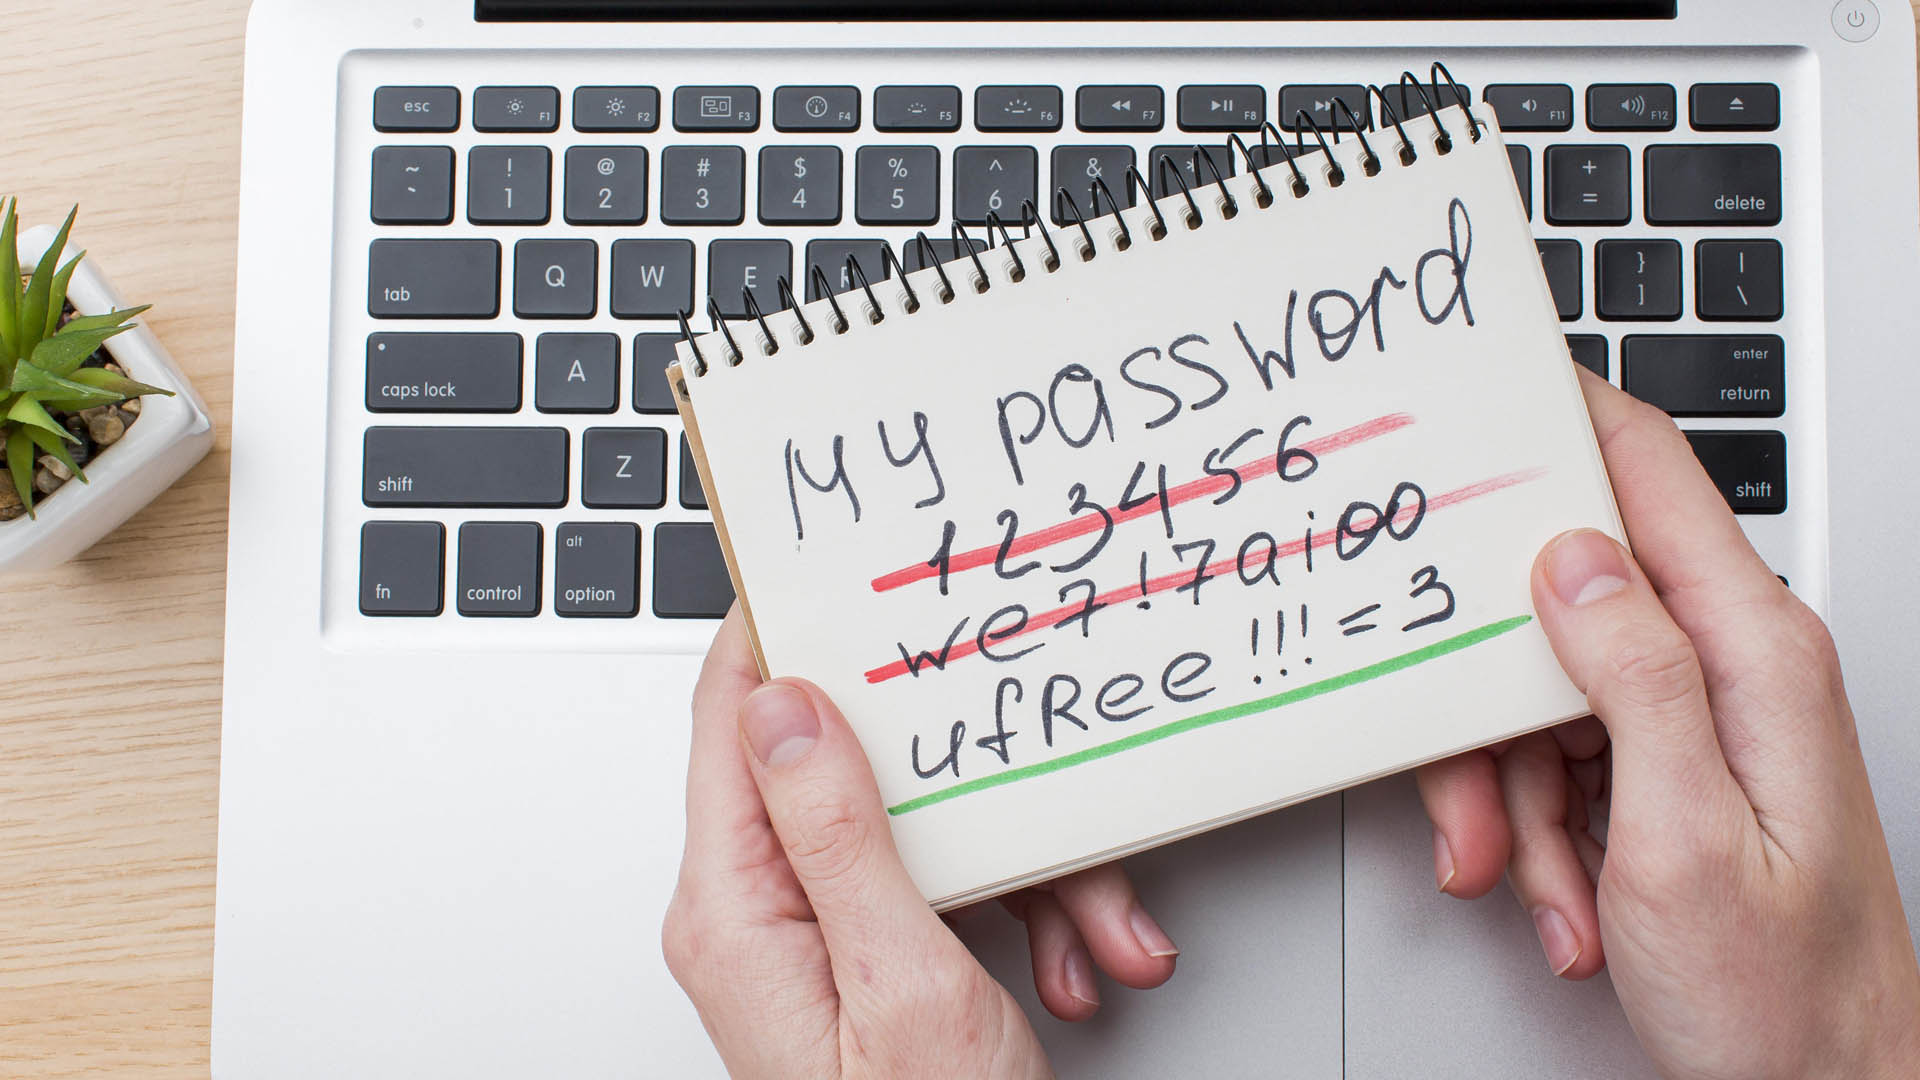 esc F1 F2 F3 F4 F5 F6 F7 F8 F9 F11 F12
~ ` ! 1 @ 2 # 3 $ 4 % 5 ^ 6 & 7 * + = delete
tab Q W E R } ] | \
caps lock A enter return
shift Z shift
fn control alt option
My password
123456
we7!7aioo
ufRee!!!=3